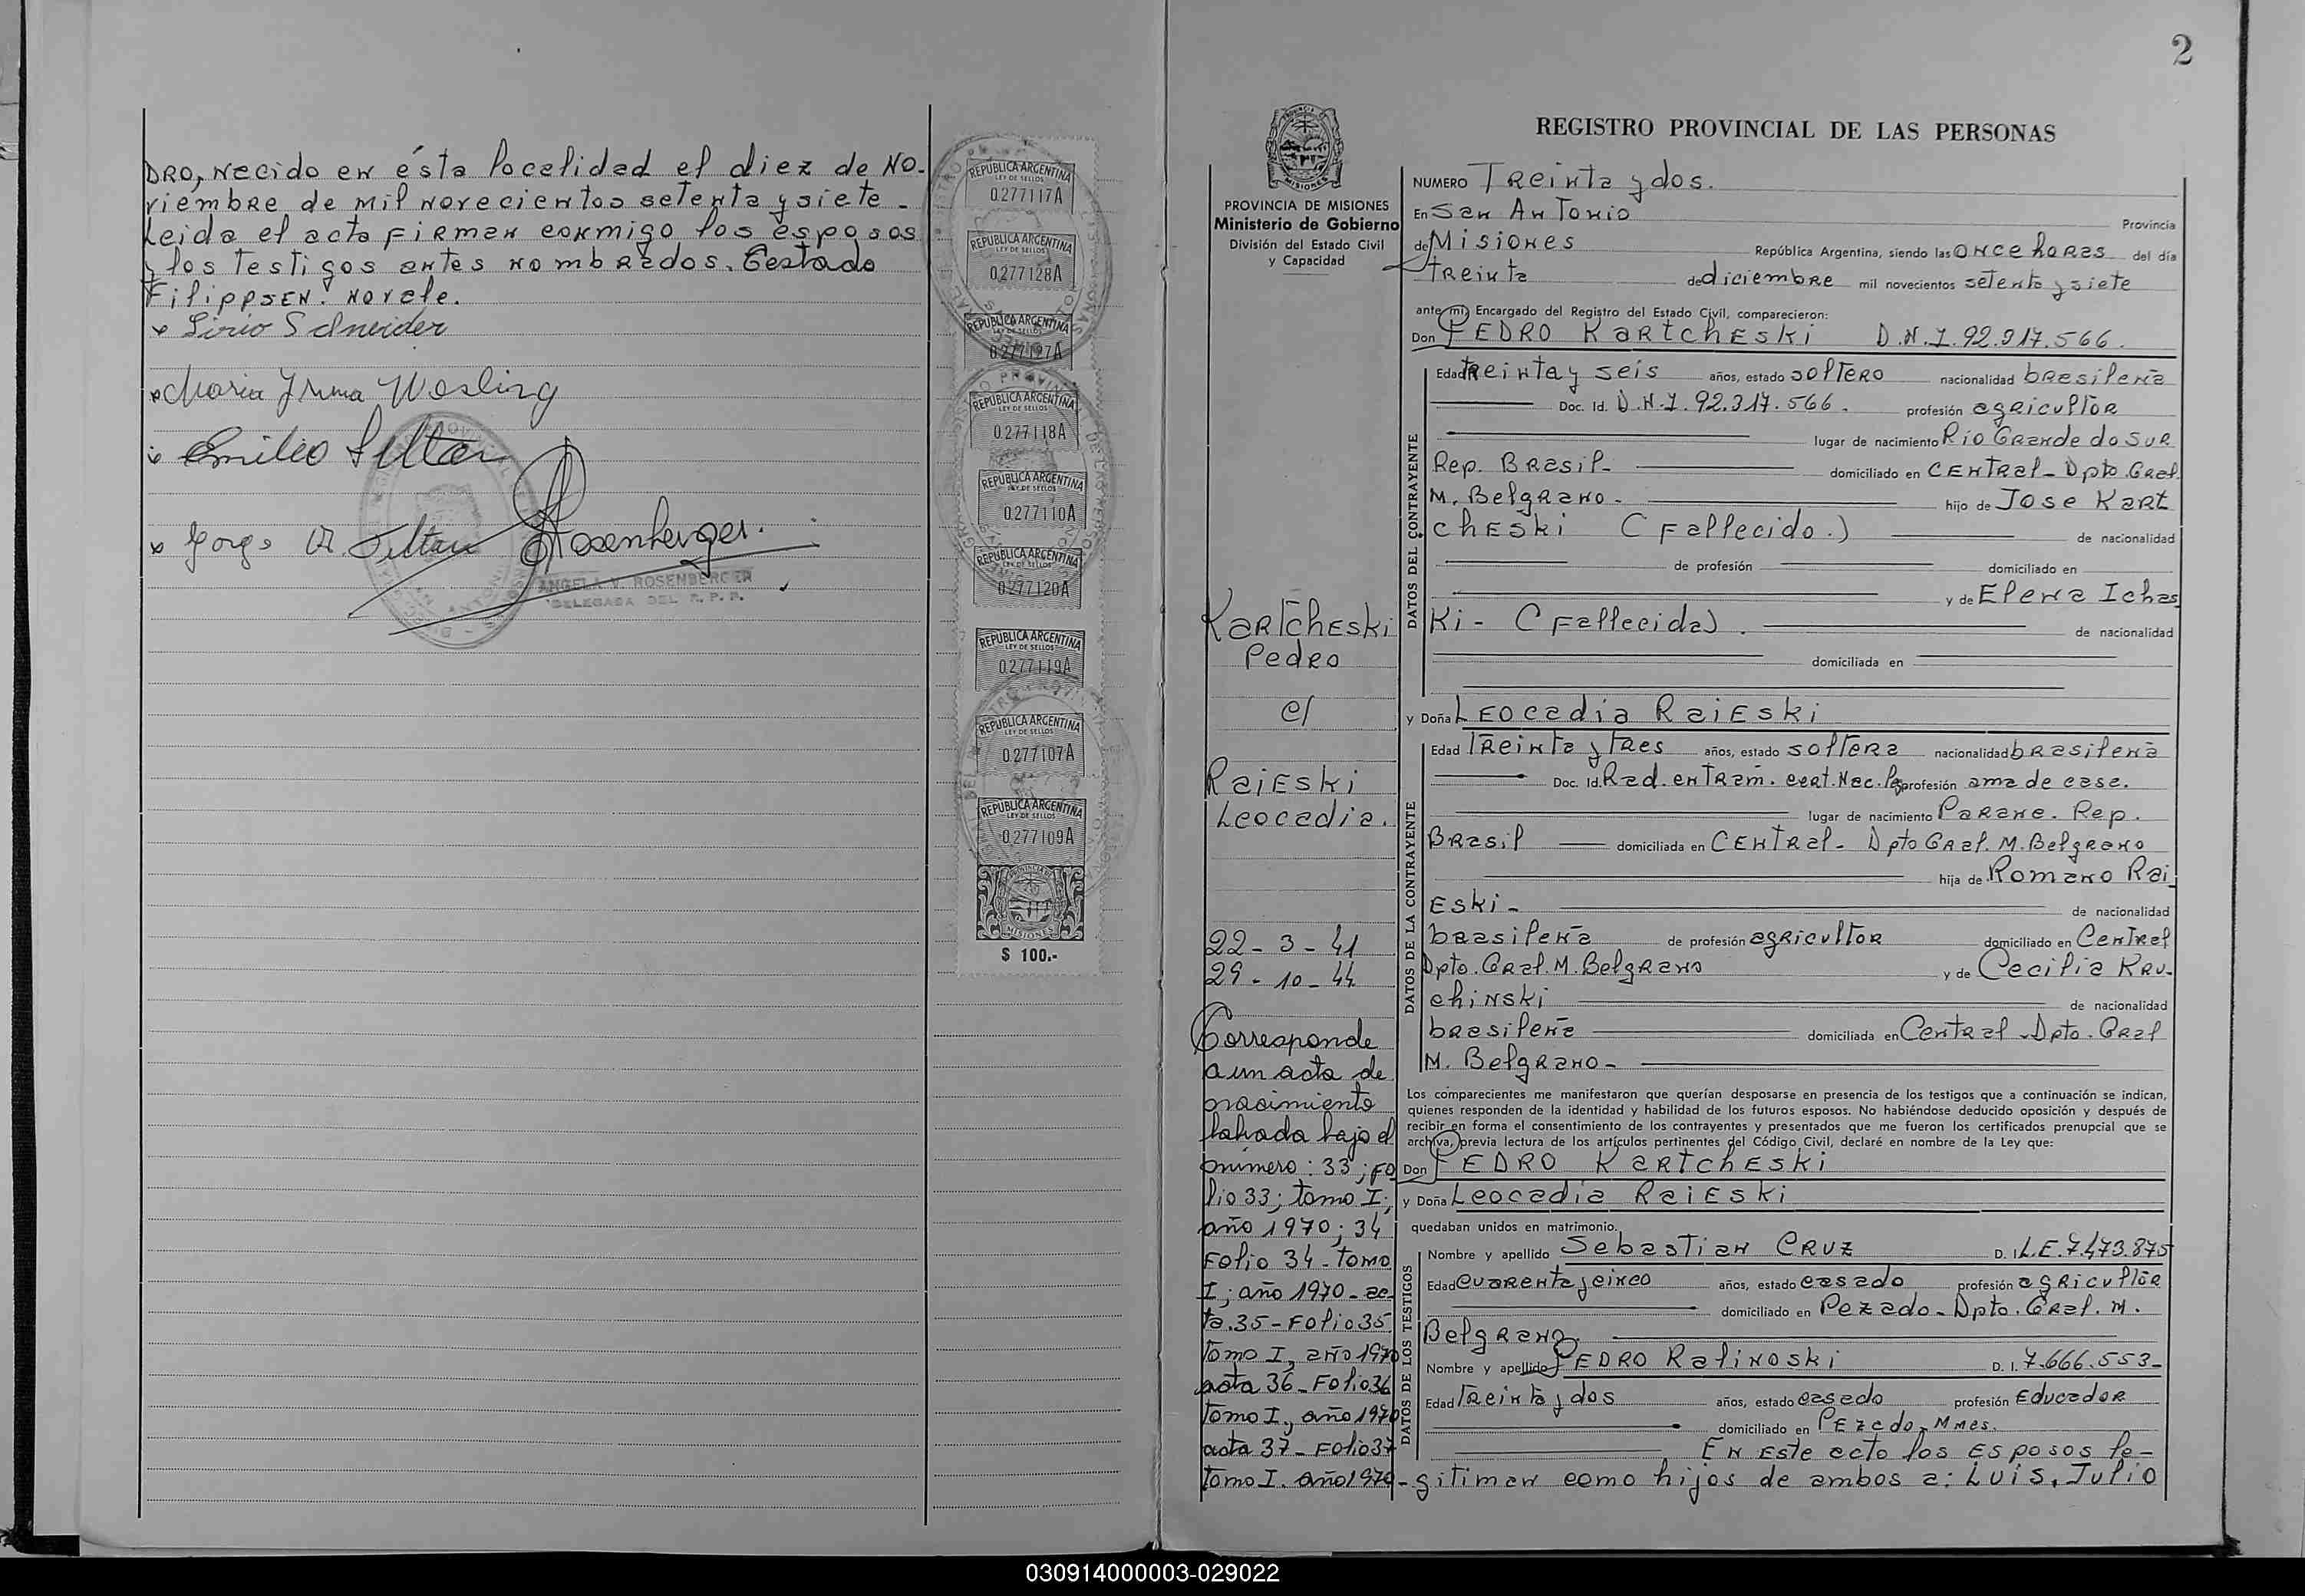 DRO, nacido en ésta localidad el diez de NO-
viembre de mil novecientos setenta y siete -
Leida el acta firman conmigo los esposos
y los testigos antes nombrados. Testado
Filippsen: no vale.
x Lirio Schneider
x Maria Irma Wesling
x Emilio
x Jorge A. Rosenberger.
ANGELA V. ROSENBERGER
DELEGADA DEL R. P. P.
REPUBLICA ARGENTINA
LEY DE SELLOS
0277117A
REPUBLICA ARGENTINA
LEY DE SELLOS
0277128A
REPUBLICA ARGENTINA
0277127A
REPUBLICA ARGENTINA
LEY DE SELLOS
0277118A
REPUBLICA ARGENTINA
LEY DE SELLOS
0277110A
REPUBLICA ARGENTINA
LEY DE SELLOS
0277120A
REPUBLICA ARGENTINA
LEY DE SELLOS
0277119A
REPUBLICA ARGENTINA
LEY DE SELLOS
0277107A
REPUBLICA ARGENTINA
LEY DE SELLOS
0277109A
MISIONES
$ 100.-
2
MISIONES
PROVINCIA DE MISIONES
Ministerio de Gobierno
División del Estado Civil
y Capacidad
Kartcheski
Pedro
c/
Raieski
Leocadia.
22-3-41
29-10-44
Corresponde
a un acta de
nacimiento
labrada bajo el
número: 33; fo
lio 33; tomo I;
año 1970; 34
Folio 34 - tomo
I; año 1970 - ac-
ta. 35 - Folio 35
tomo I, año 1970
acta 36 - Folio 36
tomo I, año 1970
acta 37 - Folio 37
tomo I. año 1970
REGISTRO PROVINCIAL DE LAS PERSONAS
NUMERO Treinta y dos.
En San Antonio Provincia
de Misiones República Argentina, siendo las once horas del día
treinta de diciembre mil novecientos setenta y siete
ante mí, Encargado del Registro del Estado Civil, comparecieron:
Don PEDRO Kartcheski D.N.I. 92.917.566.
DATOS DEL CONTRAYENTE
Edad treinta y seis años, estado soltero nacionalidad brasileña
Doc. Id. D.N.I. 92.317.566. profesión agricultor
lugar de nacimiento Rio Grande do Sur
Rep. Brasil- domiciliado en Central - Dpto. Gral
M. Belgrano - hijo de Jose Kart
cheski (Fallecido.) de nacionalidad
de profesión domiciliado en
y de Elena Ichas
Ki - (Fallecida). de nacionalidad
domiciliada en
y Doña Leocadia Raieski
DATOS DE LA CONTRAYENTE
Edad Treinta y tres años, estado soltera nacionalidad brasileña
Doc. Id. Rad. en Tram. cert. Nac. profesión ama de casa.
lugar de nacimiento Parana. Rep.
Brasil domiciliada en Central - Dpto Gral. M. Belgrano
hija de Romano Rai
Eski - de nacionalidad
brasileña de profesión agricultor domiciliado en Central
Dpto. Gral. M. Belgrano y de Cecilia Kru-
chinski de nacionalidad
brasileña domiciliada en Central - Dpto. Gral
M. Belgrano -
Los comparecientes me manifestaron que querían desposarse en presencia de los testigos que a continuación se indican,
quienes responden de la identidad y habilidad de los futuros esposos. No habiéndose deducido oposición y después de
recibir en forma el consentimiento de los contrayentes y presentados que me fueron los certificados prenupcial que se
archiva, previa lectura de los artículos pertinentes del Código Civil, declaré en nombre de la Ley que:
Don PEDRO Kartcheski
y Doña Leocadia Raieski
quedaban unidos en matrimonio.
DATOS DE LOS TESTIGOS
Nombre y apellido Sebastian Cruz D. I. L.E. 7.473.875
Edad cuarenta y cinco años, estado casado profesión agricultor
domiciliado en Pozado - Dpto. Gral. M.
Belgrano.
Nombre y apellido PEDRO Ralinoski D. I. 7.666.553-
Edad Treinta y dos años, estado casado profesión Educador
domiciliado en Pozado - Mnes.
En este acto los esposos le-
gitiman como hijos de ambos a: Luis, Julio
030914000003-029022